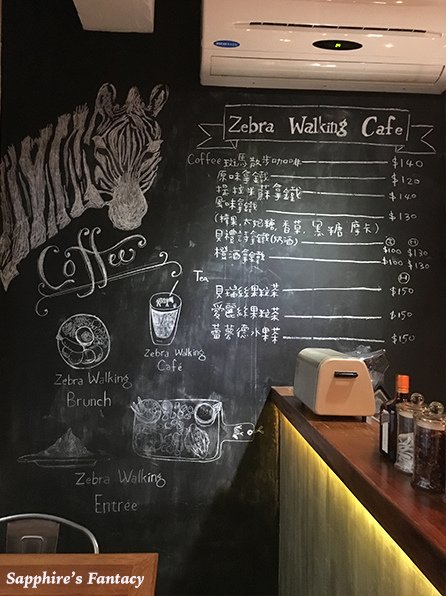 Zebra Walking Cafe
Coffee 斑馬散步 $140
原味拿鐵 $120
拿鐵 $140
風味拿鐵 $130
(榛果、太妃糖、香草、黑糖、摩卡)
貝禮詩拿鐵(奶酒) $100 $130
橙酒拿鐵 $100 $130
Tea
貝瑞絲果粒茶 $150
愛麗絲果粒茶 $150
蕾夢德水果茶 $150
Coffee
Zebra Walking
Café
Zebra Walking
Brunch
Zebra Walking
Entrée
Sapphire's Fantacy